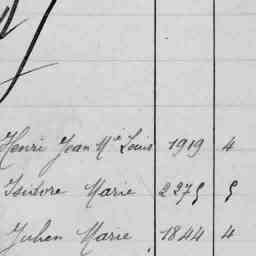 Henri Jean Mie Louis 1919 4
Isidore Marie 2275 5
Julien Marie 1844 4